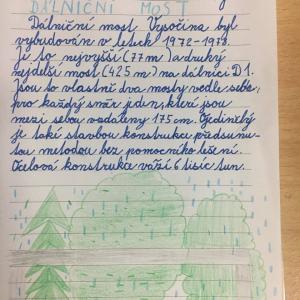 DÁLNIČNÍ MOST
Dálniční most Vysočina byl
vybudován v letech 1972-1978.
Je to nejvyšší (77 m) a druhý
nejdelší most (425 m) na dálnici D1.
Jsou to vlastně dva mosty vedle sebe,
pro každý směr jeden, které jsou
mezi sebou vzdáleny 175 m. Ojedinělý
je také stavbou konstrukce předsunu-
tou metodou bez pomocného lešení.
Ocelová konstrukce váží 6 tisíc tun.